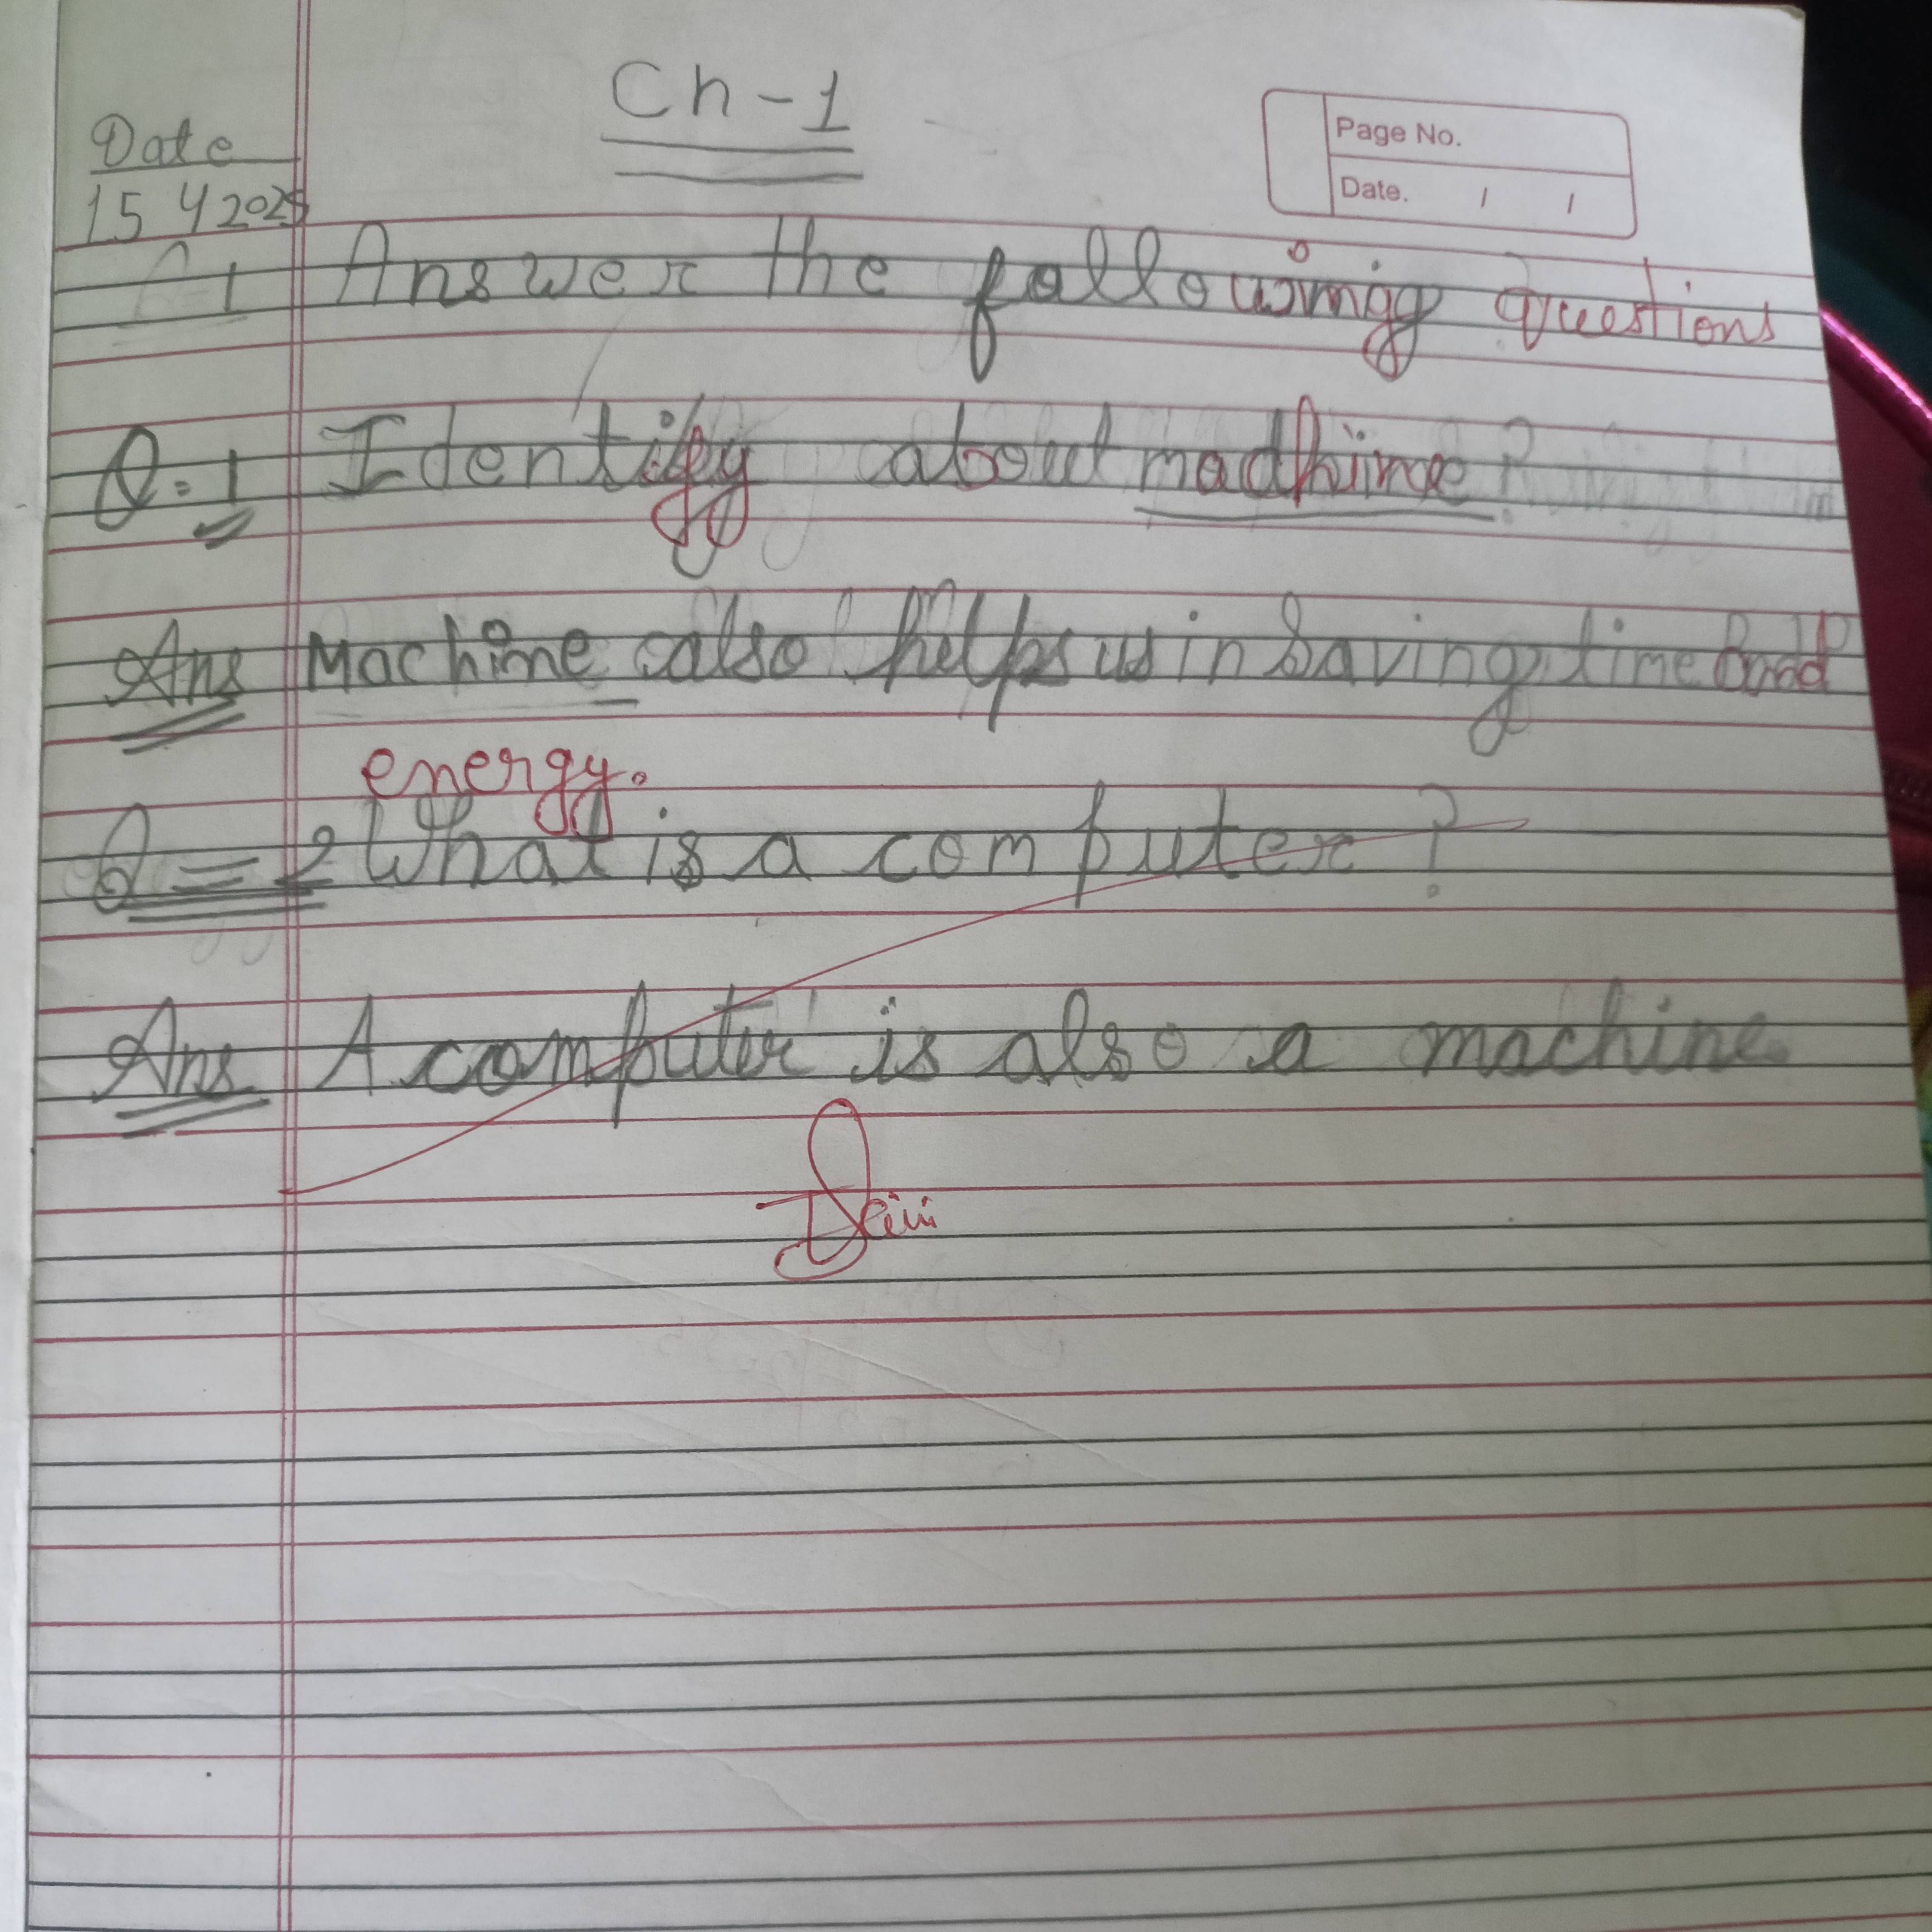 Ch-1
Page No.
Date. / /
Date
15 4 2025
Answer the following questions
Q.1 Identify about machine?
Ans Machine also helps us in saving time and
energy.
Q=2 What is a computer?
Ans A computer is also a machine